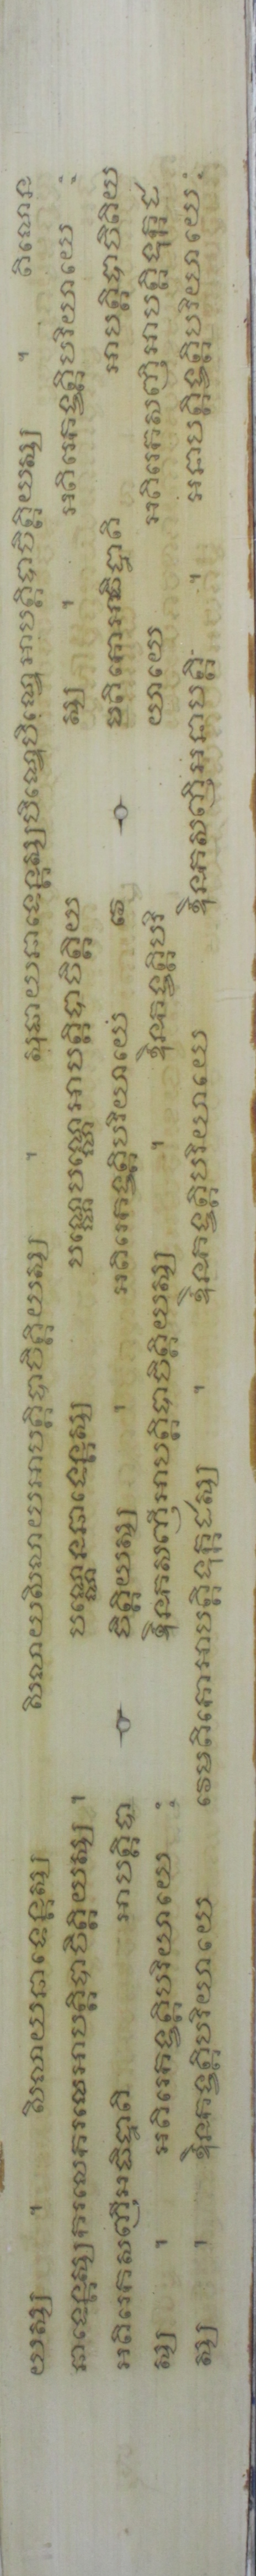 យស្ស ។ សិលាយឆាទេន្តស្ស សិលាយសិលាយអាបត្តិបាចិត្តិយស្ស ។ សុធាយឆាទេន្តស្សបិណ្ឌេបិណ្ឌេអាបត្តិបាចិត្តិយស្ស ។ តិណេន
ឆាទេន្តស្សករលេករលេអាបត្តិបាចិត្តិយស្ស ។ បណ្ណេនឆាទេន្តស្ស បណ្ណេបណ្ណេអាបត្តិបាចិត្តិយ ស្ស ។ អតិរេកទ្វត្តិបរិយាយេ :
អតិរេកសញ្ញីអធិដ្ឋាតិ អាបត្តិបា ចិត្តិយស្ស ។ អតិរេកទ្វត្តិបរិយាយេ វេ មតិកោអធិដ្ឋាតិ អាបត្តិបាចិតិយ
ស្ស ។ អតិរេកទ្វត្តិបរិយាយេ : ឩនកសញ្ញីអាបត្តិបាចិត្តិយស្ស ។ ឩនកទ្វត្តិបរិ យាយេ អតិរេកសញ្ញីអាបត្តិទុក្កដ
ស្ស ។ ឩនកទ្វត្តិបរិយាយេ វេមតិកោអាបត្តិទុក្កដស្ស ។ ឩនកទ្វត្តិបរិយាយេ ឩនកសញ្ញីអនាបត្តិ ។ អនាបត្តិទ្វត្តិបរិយាយេ :